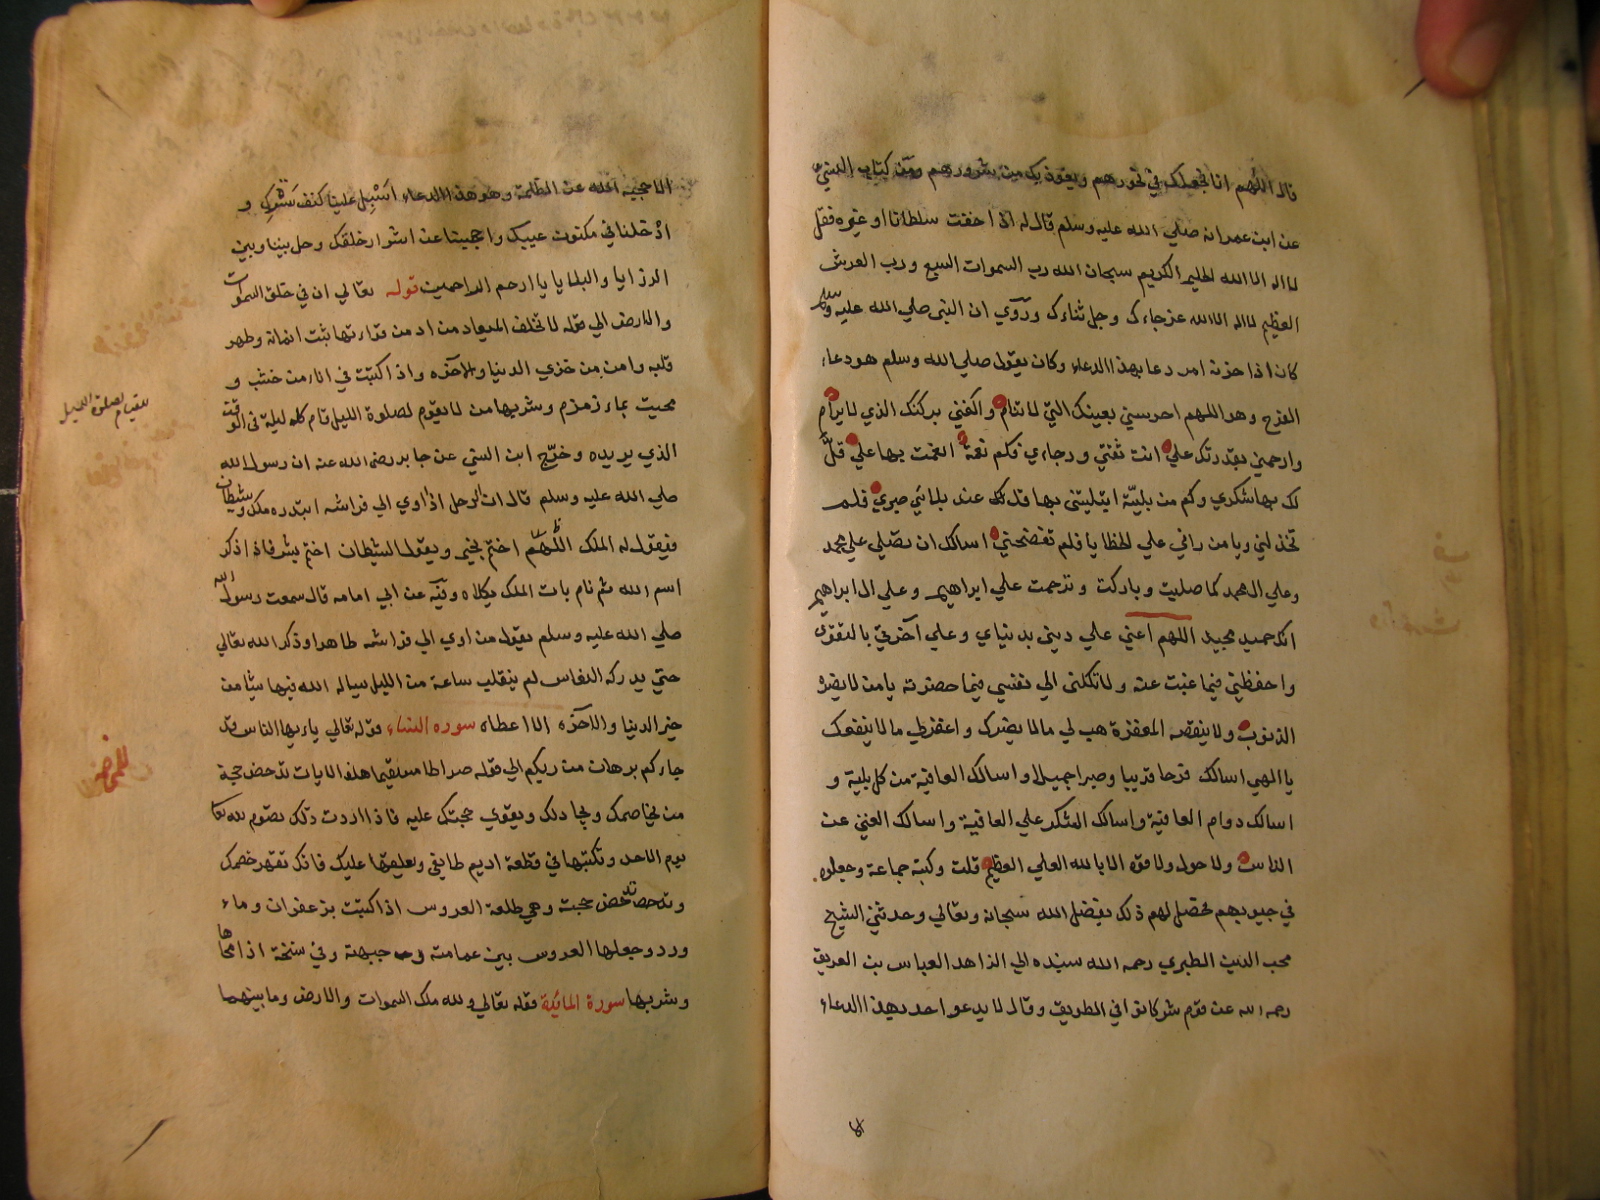 قال اللهم انا نجعلك في نحورهم ونعوذ بك من شرورهم ومن كتاب السني
عن ابن عمر انه صلي الله عليه وسلم قال له اذا خفت سلطانا او غيره فقل
لا اله الا الله الحليم الكريم سبحان الله رب السموات السبع ورب العرش
العظيم لا اله الا الله عز جارك وجل ثناءك وروي ان النبي صلي الله عليه وسلم
كان اذا حزنه امر دعا بهذا الدعاء وكان يقول صلي الله وسلم هو دعاء
الفرج وهو اللهم احرسني بعينك التي لا تنام واكفني بركنك الذي لا يرام
وارحمني بقدرتك علي انت ثقتي ورجاءي فكم نعمة انعمت بها علي قل
لك بها شكري وكم من بليّة ابتليتني بها قل لك عند بلائي صبري فلم
تخذلني ويا من راني علي الخطايا فلم تفضحني اسالك ان تصلي علي محمد
وعلي ال محمد كما صليت وباركت وترحمت علي ابراهيم وعلي ال ابراهيم
انك حميد مجيد اللهم اعني علي ديني بدنياي وعلي آخرتي بالتقوى
واحفظني فيما غبت عنه ولا تكلني الي نفسي فيما حضرته يا من لا يضره
الذنوب ولا ينقصه المغفرة هب لي ما لا يضرك واغفرلي ما لا ينفعك
يا الهي اسالك فرجا قريبا وصبرا جميلا واسالك العافية من كل بلية و
اسالك دوام العافية واسالك الشكر علي العافية واسالك الغني عن
الناس ولا حول ولا قوه الا بالله العلي العظيم قلت وكتبه جماعة وجعلوه
في جيوبهم فحصل لهم ذلك بفضل الله سبحانه وتعالي وحدثني الشيخ
محب الدين الطبري رحمه الله سنده الي الزاهد العباس بن العريف
رحمه الله عن قوم شركانوا في الطريق وقال لا يدعو احد بهذا الدعاء
الا حجبه الله عن الظلمة وهو هذا الدعاء اسبل علينا كنف سترك و
ادخلنا في مكنون غيبك واحجبنا عن اشرار خلقك وحل بيننا وبين
الرزايا والبلايا يا ارحم الراحمين قوله تعالي ان في خلق السموات
والارض الي قوله لا تخلف الميعاد من ادمن قراءتها ثبت ايمانه وطهر
قلبه وامن من خزي الدنيا والآخره واذا كتبت في اناء من خشب و
محيت بماء زمزم وشربها من لا يقوم لصلوة الليل قام كل ليلة في الوقت
للقيام لصلوة الليل
الذي يريده وخرّج ابن السني عن جابر رضي الله عنه ان رسول الله
صلي الله عليه وسلم قال ان الرجل اذا اوي الي فراشه ابتدره ملك وشيطان
فيقول له الملك اللّهمّ اختم بخير ويقول الشيطان اختم بشر فاذا ذكر
اسم الله ثم نام بات الملك يكلاه وفيه عن ابي امامه قال سمعت رسول الله
صلي الله عليه وسلم يقول من اوي الي فراشه طاهرا وذكر الله تعالي
حتي يدركه النعاس لم ينقلب ساعة من الليل سال الله فيها شيا من
خير الدنيا والآخره الا اعطاه سوره النساء قوله تعالي يا ايها الناس قد
جاءكم برهان من ربكم الي قوله صراطا مستقيما هذه الايات تدحض حجة
من يخاصمك ويجادلك ويقوي حجتك عليه فاذا اردت ذلك تصوم لله تعا
يوم الاحد وتكتبها في قطعة اديم طايفي وتعلقها عليك فانك تقهر خصمك
وتدحض حجته وهي طلعة العروس اذا كتبت بزعفران وماء
ورد وجعلها العروس بين عمامته وجبهته وفي نسخة اذا محاها
وشربها سورة المائدة قوله تعالي ولله ملك السموات والارض وما بينهما